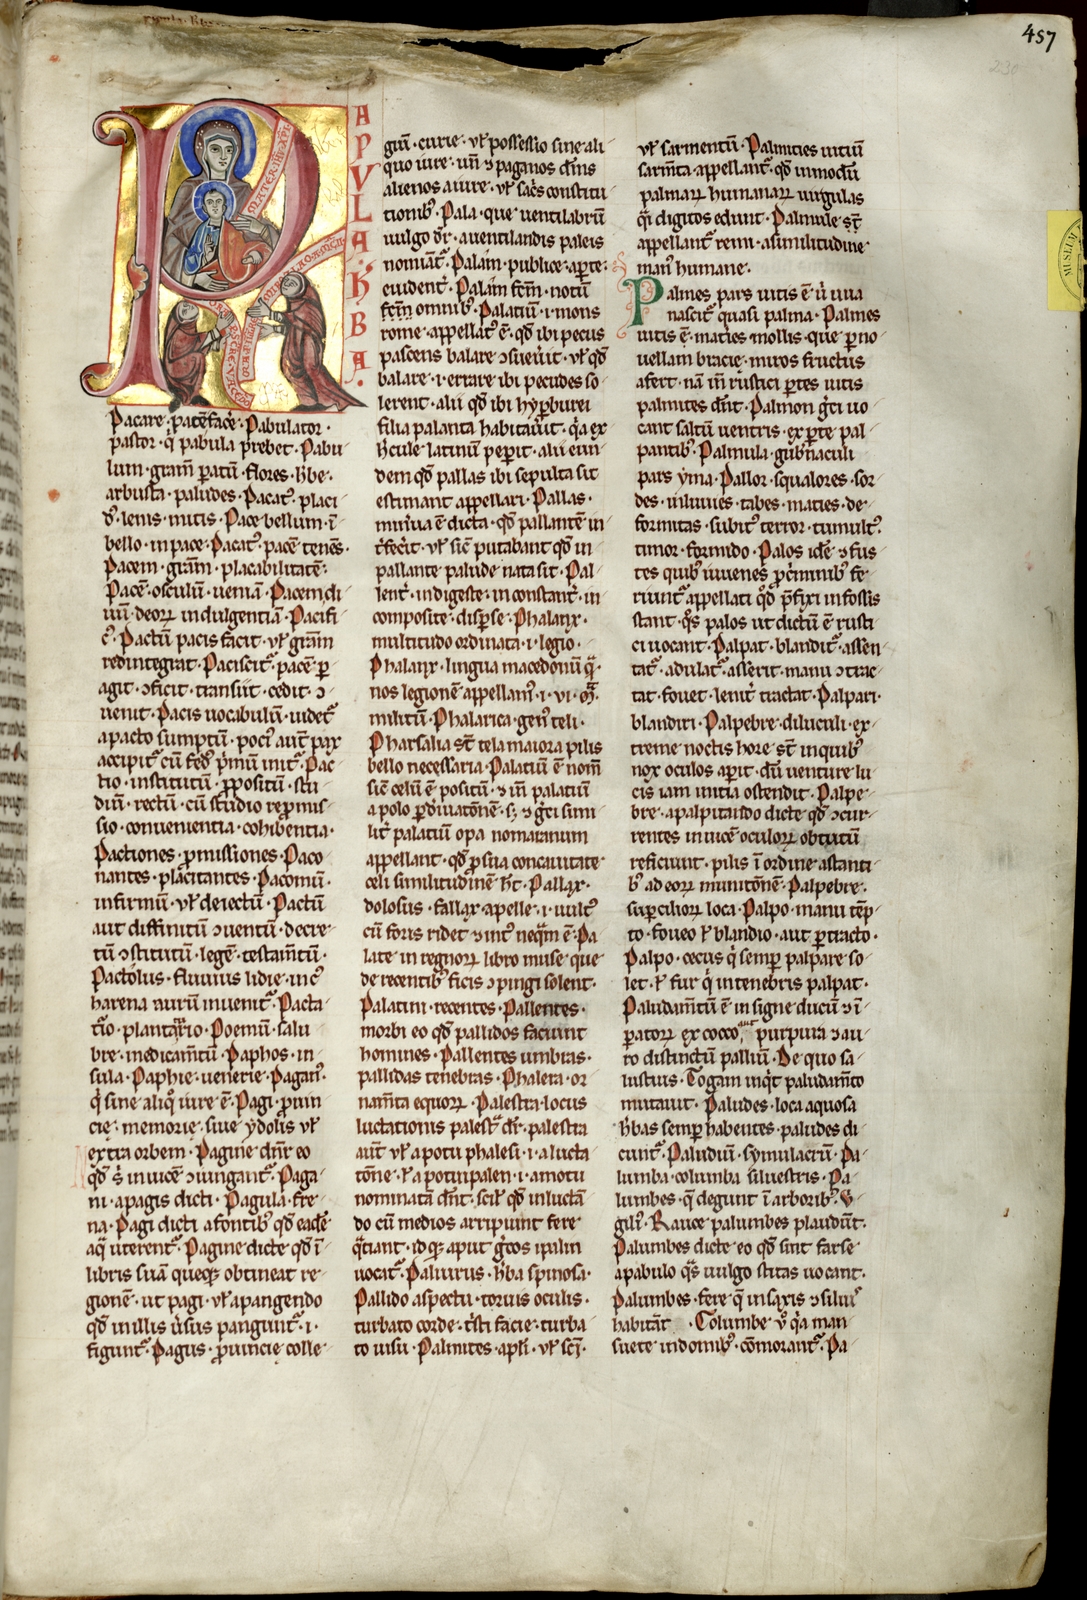 457
230
A
P
V
L
A
K
B
A
MATER
Pacare · patefac̃e · Pabulator ·
pastor · q̇ pabula p̃rebet · Pabu
lum · gram̃ · ꝑatũ · flores · h̃be ·
arbusta · paludes · Pacat᷒ · placi
d᷒ · lenis · mitis · Pace bellum · ĩ
bello · in pace · Pacat᷒ · pacẽ tenẽs ·
Pacem · gram̃ · placabilitatẽ ·
Pacẽ · osculũ · ueniã · Pacem di
uũ · deoꝝ indulgentiã · Pacifi
c᷒ · Pactũ pacis facit · uł gram̃
redintegrat · Paciscit᷑ · pacẽ ꝑ
agit · ↄficit · transiit · cedit · ↄ
uenit · Pacis uocabulũ · uidet᷑
a pacto sumptũ · poci᷒ aut̃ pax
accipit᷑ cũ fed᷒ p̃mũ init᷑ · Pac
tio · institutũ · ꝓpositũ · stu
diũ · rectũ · cũ studio repmis
sio · conuenientia · cohibentia ·
Pactiones · ꝓmissiones · Paco
nantes · placitantes · Pacomũ ·
infirmũ · uł deiectũ · Pactũ
aut diffinitũ ↄuentũ · decre
tũ ↄstitutũ · legẽ · testam̃tũ ·
Pactolus · fluuius lidie · in c᷒
harena aurũ inuenit᷑ · Pacta
tio · plantario · Poemũ · salu
bre · medicam̃tũ · Paphos · in
sula · Paphie · uenerie · Pagan᷒ ·
q̇ sine aliq̊ iure ẽ · Pagi · ꝓuin
cie · memorie · siue ydolis uł
extra orbem · Pagine dn̄r eo
qđ s̃ inuicẽ ↄiungant᷑ · Paga
ni · a pagis dicti · Pagula · fre
na · Pagi dicti a fontib᷒ qđ eadẽ
aq̃ uterent᷑ · Pagine dicte qđ ĩ
libris suã queqꝫ obtineat re
gionẽ · ut pagi · uł a pangendo
qđ in illis ũsus pangunt᷑ · i ·
figunt᷑ · Pagus · ꝓuincie colle
giũ · curie · uł possessio sine ali
quo iure · uñ ⁊ paganos dĩns
alienos a iure · uł sac̃s constitu
tionib᷒ · Pala · que uentilabrũ
uulgo dr̃ · a uentilandis paleis
nomiat᷑ · Palam · publice · aꝑte ·
euident᷑ · Palam fcm̃ · notũ
fcm̃ omnib᷒ · Palatiũ · i · mons
rome · appellat᷒ ẽ · qđ ibi pecus
pascens balare ↄsueuit · uł qđ
balare · i · errare ibi pecudes so
lerent · alii qđ ibi hyꝑburei
filia palanta habitauit · q̃a ex
hc̃ule latinũ peꝑit · alii eun
dem qđ pallas ibi sepulta sit
estimant appellari · Pallas ·
minũa ẽ dicta · qđ pallantẽ in
t̃fecit · uł sic̃ putabant qđ in
pallante palude nata sit · Pal
lent᷑ · indigeste · in constant᷑ · in
composite · disꝑse · Phalanx ·
multitudo ordinata · i · legio ·
Phalanx · lingua macedonũ q̃
nos legionẽ appellam᷒ · i · vi · m̃
militũ · Phalarica · gen᷒ teli ·
Pharsalia st̃ tela maiora pilis
bello necessaria · Palatiũ ẽ nom̃
sic̃ celũ ẽ positũ · ⁊ im̃ palatiũ
a polo ꝑ diuatõnẽ · sꝫ ⁊ gc̃i simi
lit᷑ palatiũ opa nomaranum
appellant · qđ ꝓ sua concauitate
celi similitudinẽ h̃t · Pallax ·
dolosus · fallax · a pelle · i · uult᷒
cũ foris ridet ⁊ int᷒ neq̃m ẽ · Pa
late in regnoꝝ libro muse que
de recentib᷒ ficis ↄpingi solent ·
Palatini · recentes · Pallentes ·
morbi eo qđ pallidos faciunt
homines · Pallentes umbras ·
pallidas tenebras · Phalera · or
nam̃ta equoꝝ · Palestra · locus
luctationis palest᷑ dr̃ · palestra
aut̃ uł a potu phalesi · i · a lucta
tõne · uł a potinpalen · i · a motu
nominatã dn̄t · scił qđ in luctã
do cũ medios arripiunt fere
q̃tiant · idqꝫ aput gc̃os ipalin
uocat᷑ · Paliurus · h̃ba spinosa ·
Pallido aspectu · toruis oculis ·
turbato corde · t̃sti facie · turba
to uisu · Palmites · apłi · uł sci ·
uł sarmentũ · Palmities uitiũ
sarm̃ta appellant᷑ · qđ in modũ
palmaꝝ humanaꝝ uirgulas
q̃i digitos edunt · Palmule st̃
appellant᷑ remi · a similitudine
man᷒ humane ·
Palmes pars uitis ẽ ũ uua
nascit᷑ quasi palma · Palmes
uitis ẽ · maties mollis · que ꝑ no
uellam bracię · miros fructus
afert · nã im̃ rustici ꝑtes uitis
palmites dn̄t · Palmon gc̃i uo
cant saltũ uentris · ex ꝑte pal
pantib᷒ · Palmula · gub̃naculi
pars yma · Pallor · squalores · sor
des · inluuies · tabes · maties · de
formitas · subit᷒ terror · tumult᷒
timor · formido · Palos id̃e ⁊ fus
tes quib᷒ iuuenes ꝓc̃iminib᷒ fe
riunt᷑ appellati qđ p̃fixi in fossis
stant · q̊s palos ut dictũ ẽ rusti
ci uocant · Palpat · blandit᷑ · assen
tat᷑ · adulat᷑ · asserit · manu ↄtrac
tat · fouet · lenit᷑ tractat · Palpari ·
blandiri · Palpebre · diluculi · ex
treme noctis hore · st̃ in quib᷒
nox oculos aꝑit · dũ uenture lu
cis iam initia ostendit · Palpe
bre · a palpitando dicte qđ ↄcur
rentes inuicẽ oculoꝝ obtutũ
reficiunt · pilis ĩ ordine astanti
b᷒ ad eoꝝ munitõnẽ · Palpebre ·
suꝑcilioꝝ loca · Palpo · manu tẽp
to · foueo ł blandio · aut ꝑtracto ·
Palpo · cecus q̇ semꝑ palpare so
let · ł fur q̇ in tenebris palpat ·
Paludam̃tũ ẽ insigne ducũ ⁊ ĩ
ꝑatoꝝ ex cocco aut purpura ⁊ au
ro distinctũ palliũ · De quo sa
lustius · Togam inqt̃ paludam̃to
mutauit · Paludes · loca aquosa
h̃bas semꝑ habentes · paludes di
cunt᷑ · Paludiũ · symulacrũ · Pa
lumba · columba siluestris · Pa
lumbes · que degunt ĩ arborib᷒ · V
gili᷒ · Rauce palumbes plaudũt ·
Palumbes dicte eo qđ sint farse
a pabulo q̃s uulgo stitas uocant ·
Palumbes · fere q̃ in saxis ⁊ silui᷒
habitãt · Columbe ũ q̃a man
suete in domib᷒ · cõmorant᷑ · Pa
MUSEUM